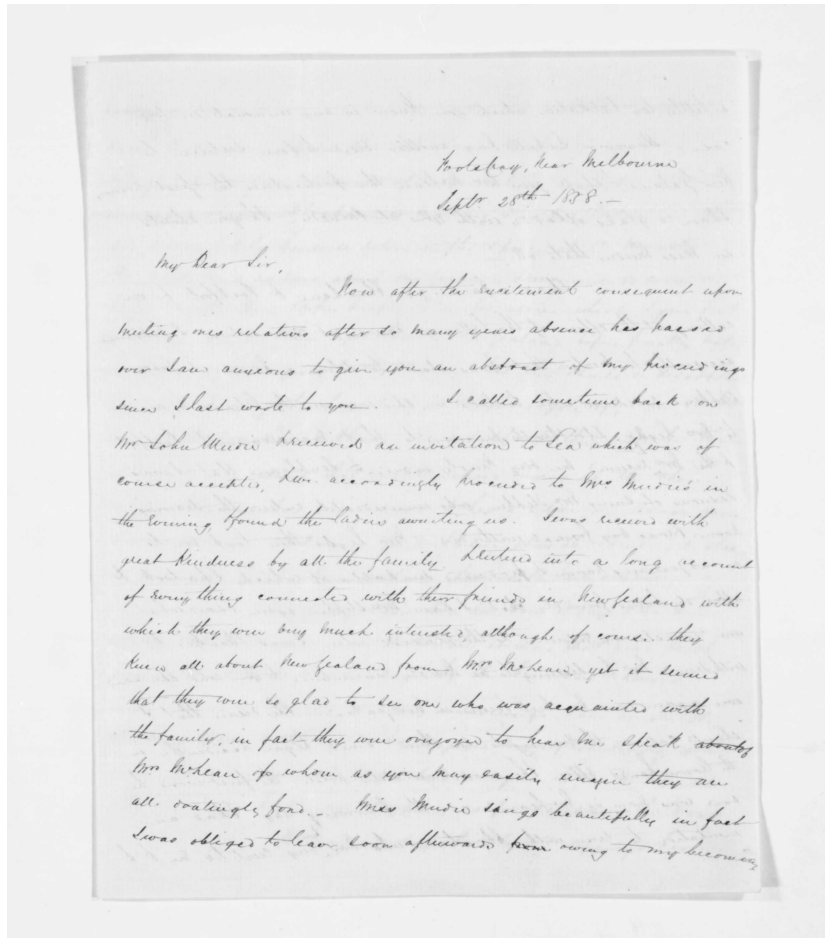 Footscray, near Melbourne
Septr 28th 1858. —
My Dear Sir,
Now after the excitement consequent upon
meeting ones relatives after so many years absence has passed
over I am anxious to give you an abstract of my proceedings
since I last wrote to you. I called sometime back on
Mr John Mudie & received an invitation to tea which was of
course accepted, & we accordingly proceeded to Mrs Mudie's in
the evening & found the ladies awaiting us. I was received with
great kindness by all the family & entered into a long account
of everything connected with their friends in New Zealand with
which they were very much interested although of course they
knew all about New Zealand from Mrs McLean, yet it seemed
that they were so glad to see one who was acquainted with
the family, in fact they were overjoyed to hear me speak about
Mrs McLean of whom as you may easily imagine they are
all doatingly fond. — Miss Mudie sings beautifully in fact
I was obliged to leave soon afterwards from owing to my becoming